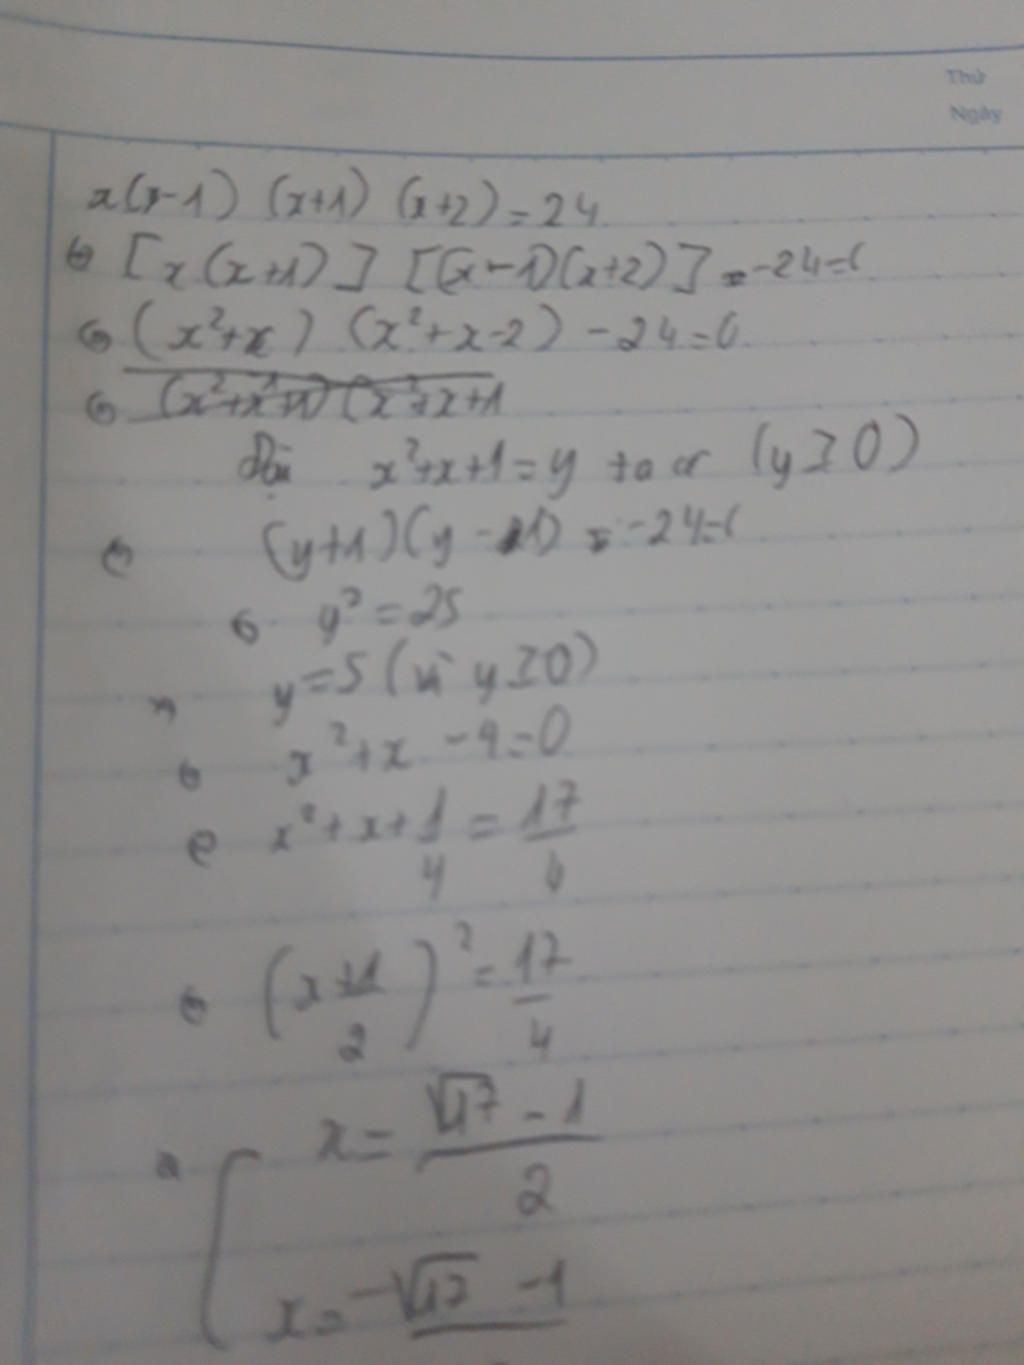 Thứ
Ngày
x(x-1) (x+1) (x+2) = 24
⇔ [x(x+1)] [(x-1)(x+2)] - 24 = 0
⇔ (x²+x) (x²+x-2) - 24 = 0
⇔ (x²+x+1) (x²+x+1
Đặt x²+x+1 = y ta có (y ≥ 0)
⇔ (y+1)(y-1) - 24 = 0
⇔ y² = 25
⇔ y = 5 (vì y ≥ 0)
⇔ x² + x - 4 = 0
⇔ x² + x + 1/4 = 17/4
⇔ (x + 1/2)² = 17/4
⇔ [ x = (√17 - 1)/2
x = -√17 - 1